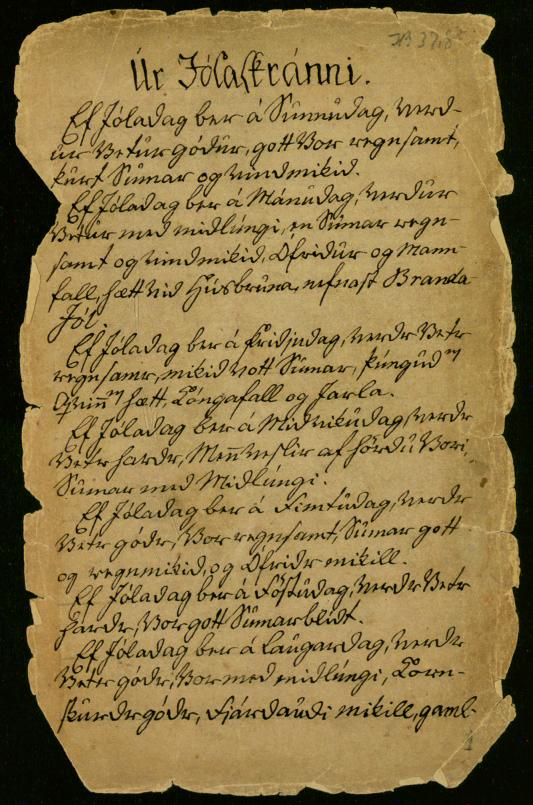 ÍB 37,8º
Úr Jólaskránni.
Ef Jóladag ber á Sunnudag, verd-
ur Vetur gódur, gott Vor regnsamt,
kurt Sumar og vindmikid.
Ef Jóladag ber á Mánudag, verdur
Vetur med midlúngi, en Sumar regn-
samt og vindmikid, Ófridur og Mann-
fall, hætt vid Húsbruna, nefnast Branda-
Jól.
Ef Jóladag ber á Þridjudag, verdr Vetr
regnsamr, mikid vott Sumar, þúngud
hætt, Kóngafall og Jarla.
Ef Jóladag ber á Midvikudag, verdr
Vetr hardr, Menn veslir af hördu Vori,
Sumar med Midlúngi.
Ef Jóladag ber á Fimtudag, verdr
Vetr gódr, Vor regnsamt, Sumar gott
og regnmikid, og Ófridr mikill.
Ef Jóladag ber á Föstudag, verdr Vetr
hardr, Vor gott Sumar blidt.
Ef Jóladag ber á Laugardag, verdr
Vetr gódr, Vor med midlúngi, Korn-
skurdr gódr, Fjárdaudi mikill, gaml-